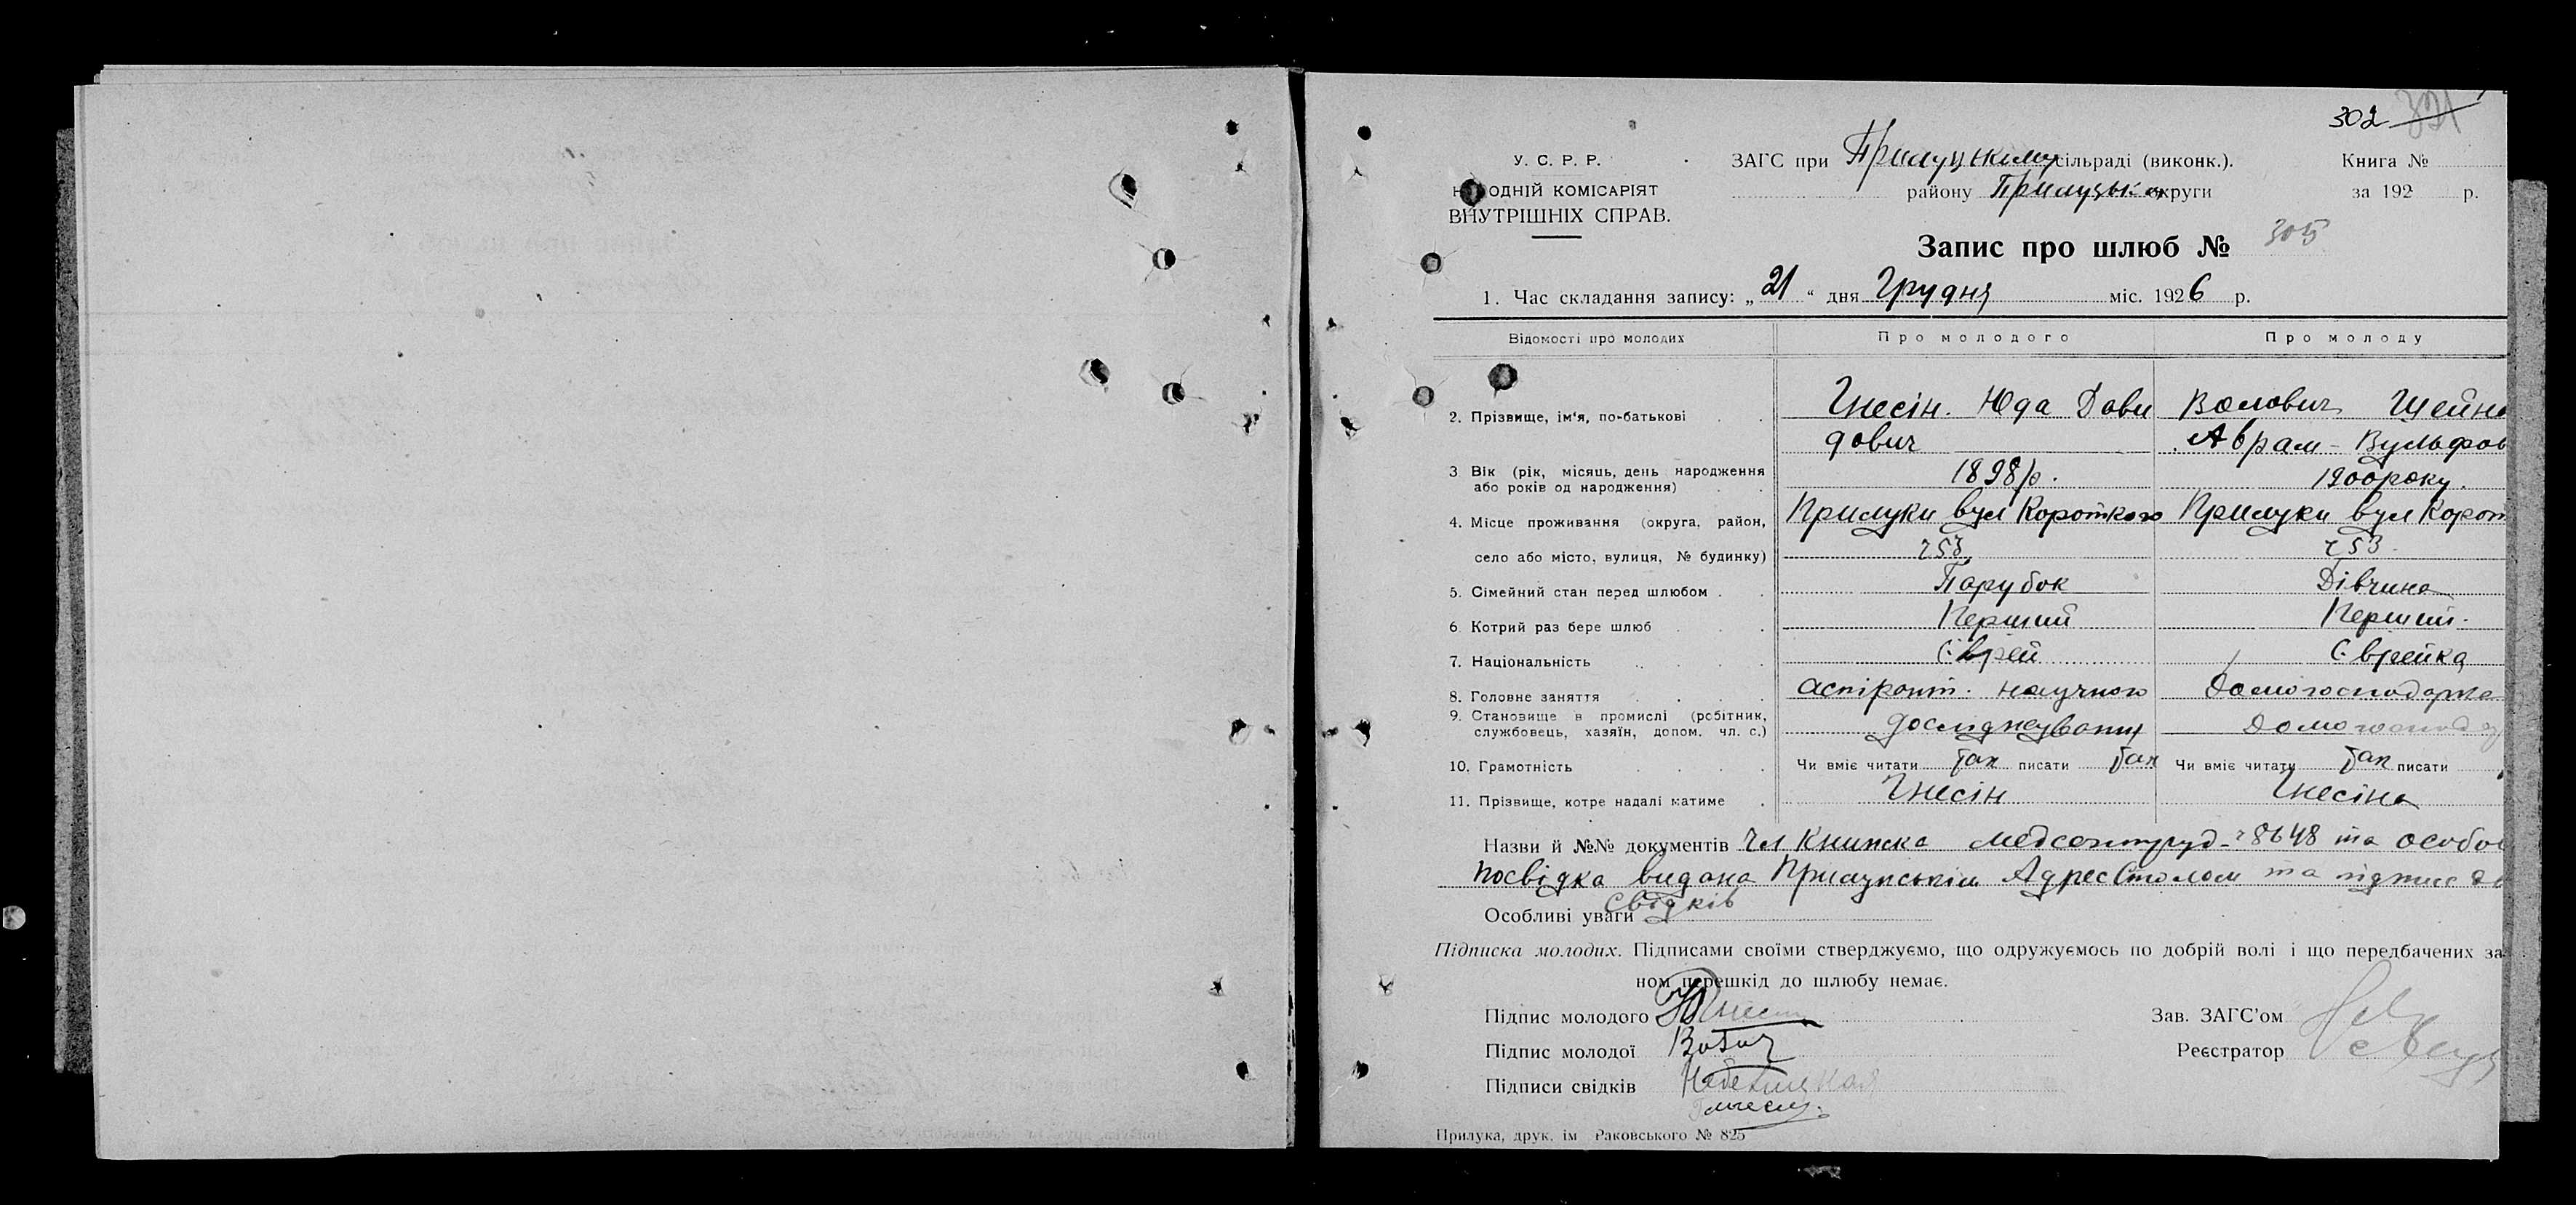 302 321
У. С. Р. Р. ЗАГС при Прилуцькому сільраді (виконк.). Книга №
НАРОДНІЙ КОМІСАРІЯТ району Прилуцької округи за 192 р.
ВНУТРІШНІХ СПРАВ.
Запис про шлюб № 305
1. Час складання запису: „21“ дня Грудня міс. 1926 р.
Відомості про молодих Про молодого Про молоду
2. Прізвище, ім'я, по-батькові Гнесін. Юда Дави Волович Шейна
дович Аврам-Вульфов
3 Вік (рік, місяць, день народження 1898 р. 1900 року.
або років од народження)
4. Місце проживання (округа, район, Прилуки вул Короткого Прилуки вул Корот
село або місто, вулиця, № будинку) ч 53 ч 53
5. Сімейний стан перед шлюбом . Парубок Дівчина
6. Котрий раз бере шлюб Перший Перший.
7. Національність Єврей Єврейка
8. Головне заняття аспірант. научного Домогосподарка
9. Становище в промислі (робітник, досліджування Домогоспод
службовець, хазяїн, допом. чл. с.)
10. Грамотність Чи вміє читати так писати так Чи вміє читати так писати
11. Прізвище, котре надалі матиме Гнесін Гнесіна
Назви й №№ документів чл книжка медсантруд-ч 8648 та особов
посвідка видана Прилуцькім АдресСтолом та підпис дв
свідків
Особливі уваги
Підписка молодих. Підписами своїми стверджуємо, що одружуємось по добрій волі і що передбачених за
ном перешкід до шлюбу немає.
Підпис молодого Гнесин Зав. ЗАГС'ом
Підпис молодої Реєстратор
Підписи свідків
Прилука, друк. ім Раковського № 825